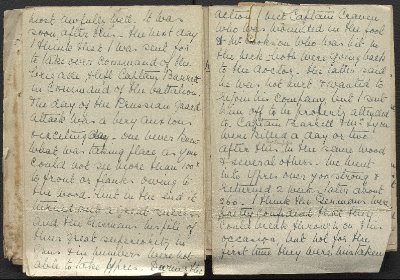 most awfully well. It was
soon after this - the next day
I think that I was sent for
to take over command of the
Brigade & left Captain Barrett
in command of the battalion.
The day of the Prussian Guard
attack was a very anxious
& exciting day. One never knew
what was taking place as you
could not see more than 100ˣ
to front or flanks owing to
the wood. But in the end it
was a great success
and the Germans in spite of
great superiority in
guns & in numbers were not
able to take Ypres. During the
action that Captain Craven
who was wounded in the foot
& Mr Hodgson who was hit in
the neck both were going back
to the doctor. The latter said
he was not hurt & wanted to
rejoin his company but I sent
him off to be properly attended
to. Captain Barrett & this boy
were killed a day or two
after this in the same wood
& several others. We went
into Ypres over 900 strong &
returned 2 weeks later about
260. I think the Germans were
pretty confident that they
could break through on this
occasion but not for the
first time they were mistaken